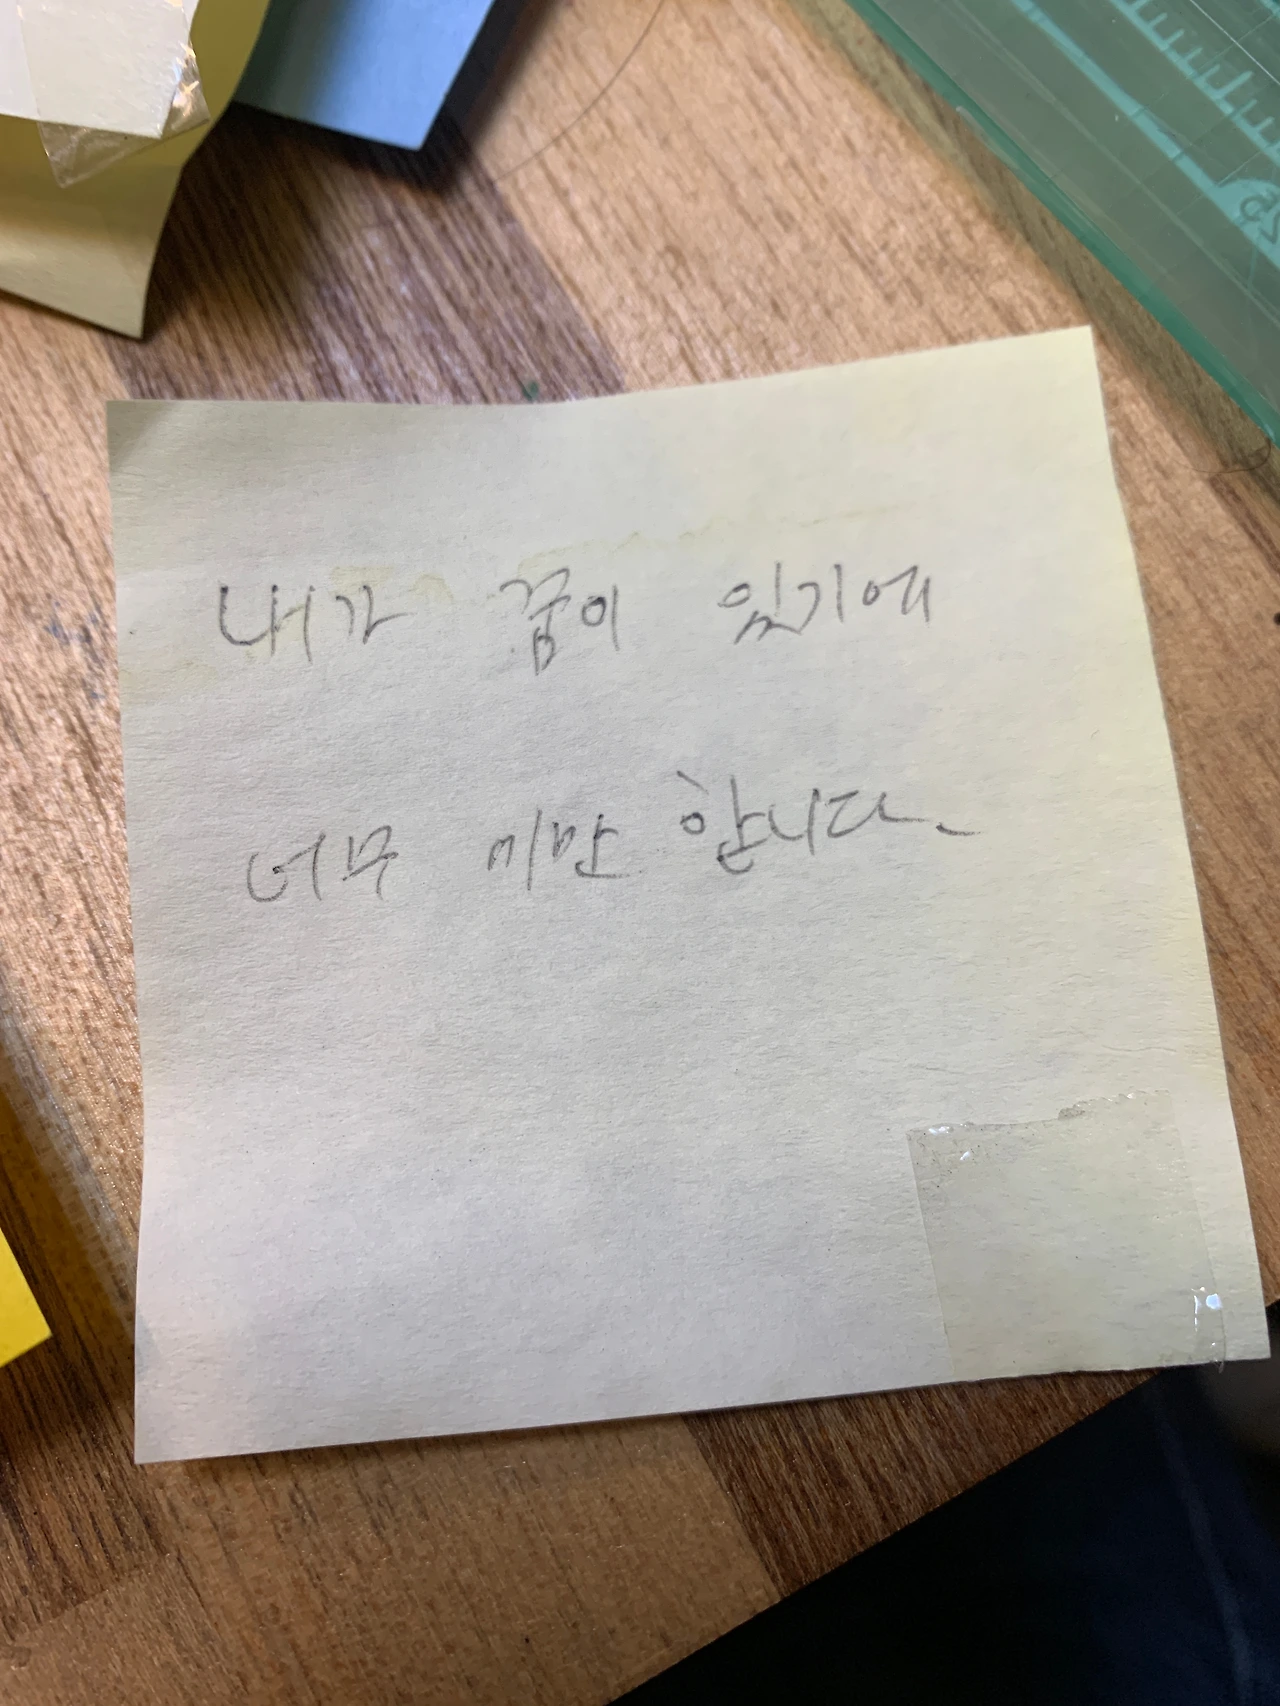 내가 꿈이 있기에
너무 미안 합니다.